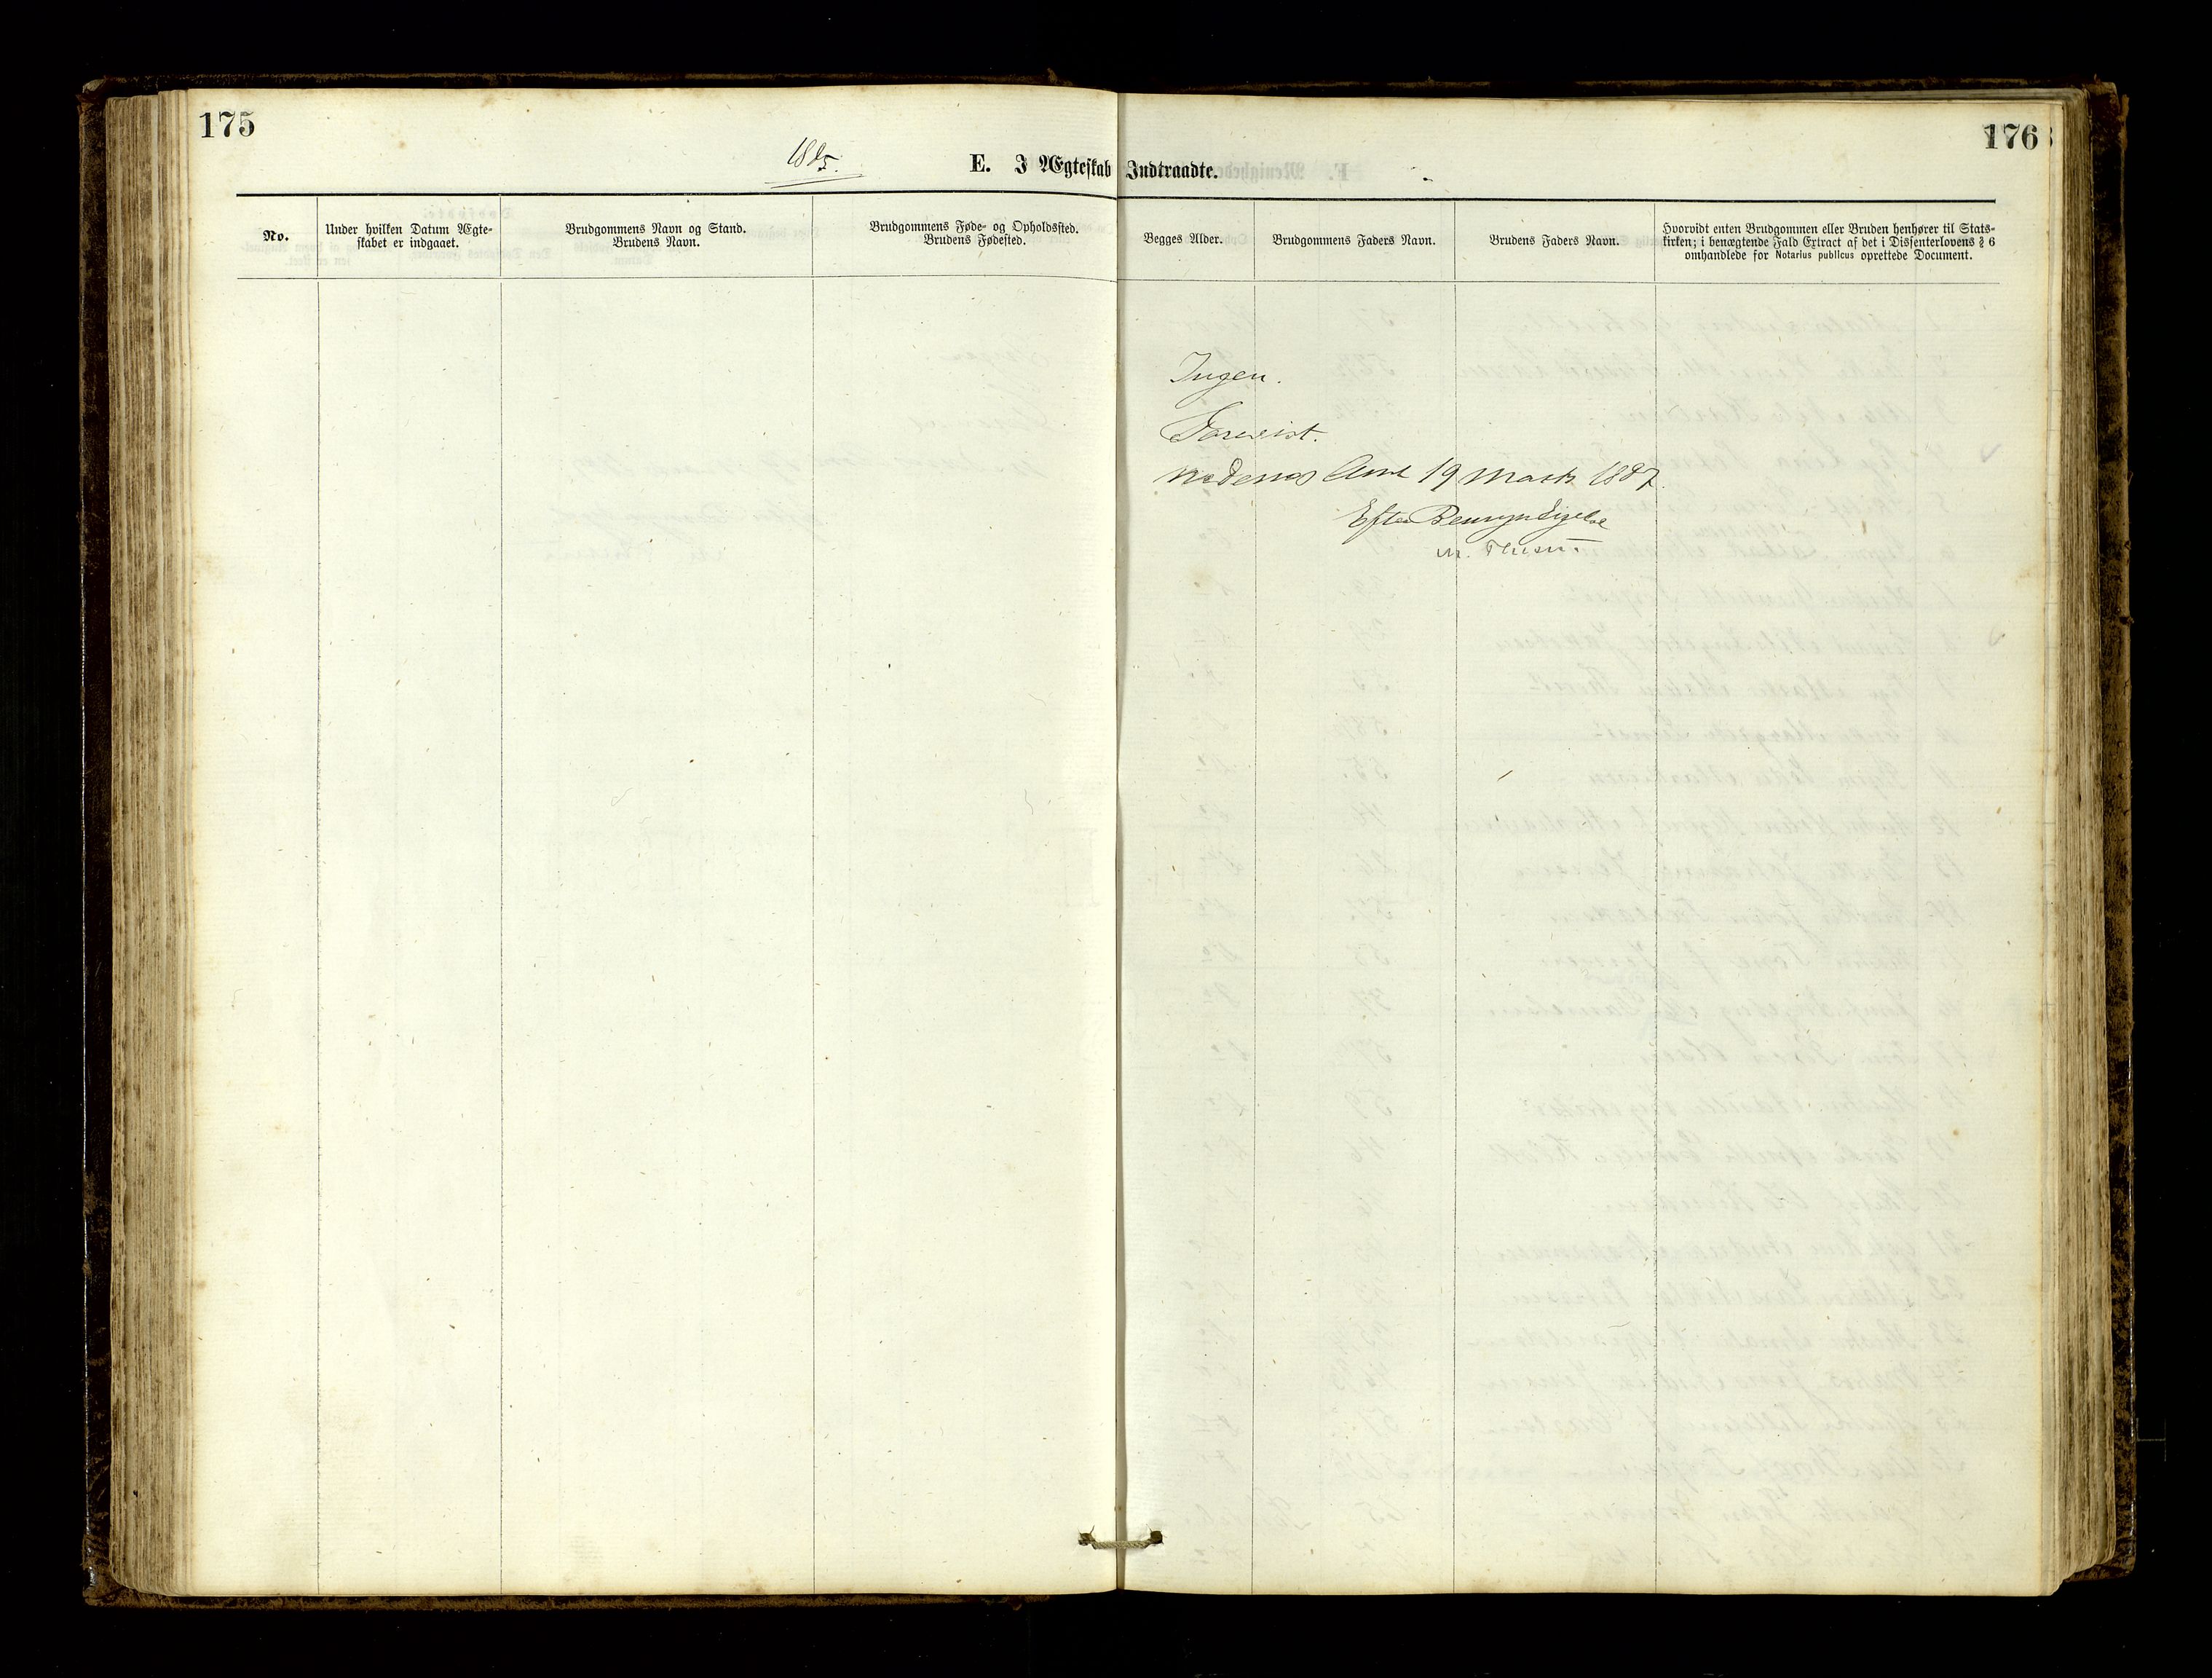 175
176
1885.
E. I Ægteskab Indtraadte.
No.
Under hvilken Datum Ægte-
skabet er indgaaet.
Brudgommens Navn og Stand.
Brudens Navn.
Brudgommens Føde- og Opholdssted.
Brudens Fødested.
Begges Alder.
Brudgommens Faders Navn.
Brudens Faders Navn.
Hvorvidt enten Brudgommen eller Bruden henhører til Stats-
kirken; i benægtende Fald Extract af det i Dissenterlovens § 6
omhandlede for Notarius publicus oprettede Document.
Ingen.
Forevist.
Nedenes Amt 19 Marts 1887.
Efter Bemyndigelse